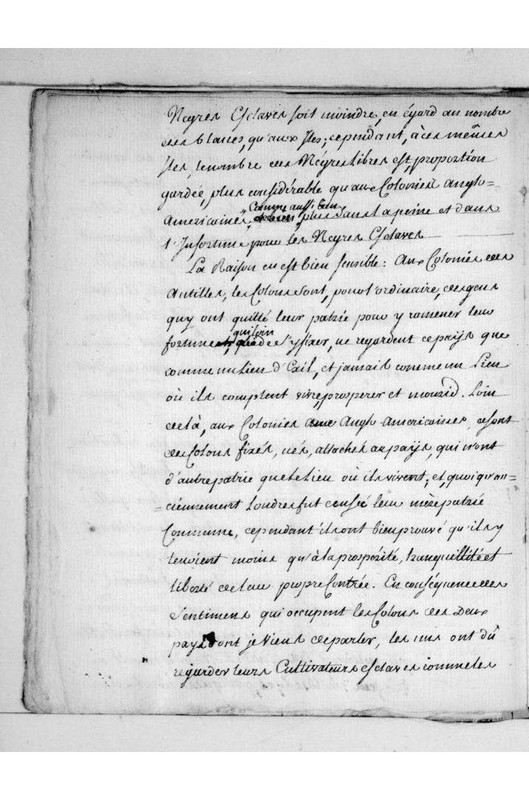 Negres Esclaves soit moindre, en égard au nombre
des blancs, qu'aux Isles; cependant, à ces mêmes
Isles, le nombre des Négres libres est, proportion
gardée, plus considérable qu'aux Colonies Anglo-
Americaines, Comme aussi bien plus dans la peine et dans
l'Infortune pour les Negres Esclaves
La Raison en est bien sensible: Aux Colonies des
Antilles, les Colons sont, pour l'ordinaire, des gens
quy ont quitté leur patrie pour y ramener leur
fortune qui loin de s'y fixer, ne regardent ce pays que
comme un lieu d'Exil, et jamais comme un Lieu
où ils comptent vivre, prosperer et mourir. Loin
de là, aux Colonies Anglo-Americaines, ce sont
des Colons fixés, nés, attachés au pays, qui n'ont
d'autre patrie que le Lieu où ils vivent; et, quoiqu'an-
=ciennement Londres fut censée leur mère patrie
Commune, cependant ils ont bien prouvé qu'ils y
tenoient moins qu'à la prosperité, tranquillité et
liberté de leur propre Contrée. En conséquence des
Sentimens qui occupent les Colons des Deux
pays dont je Viens de parler, les uns ont dû
regarder leurs Cultivateurs Esclaves comme les